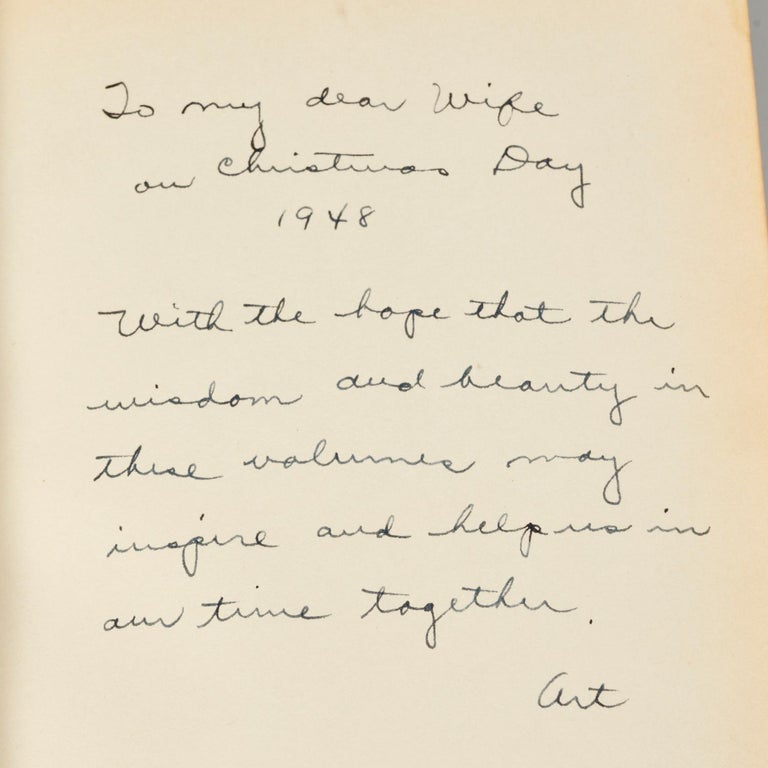 To my dear Wife
on Christmas Day
1948
With the hope that the
wisdom and beauty in
these volumes may
inspire and help us in
our time together.
Art